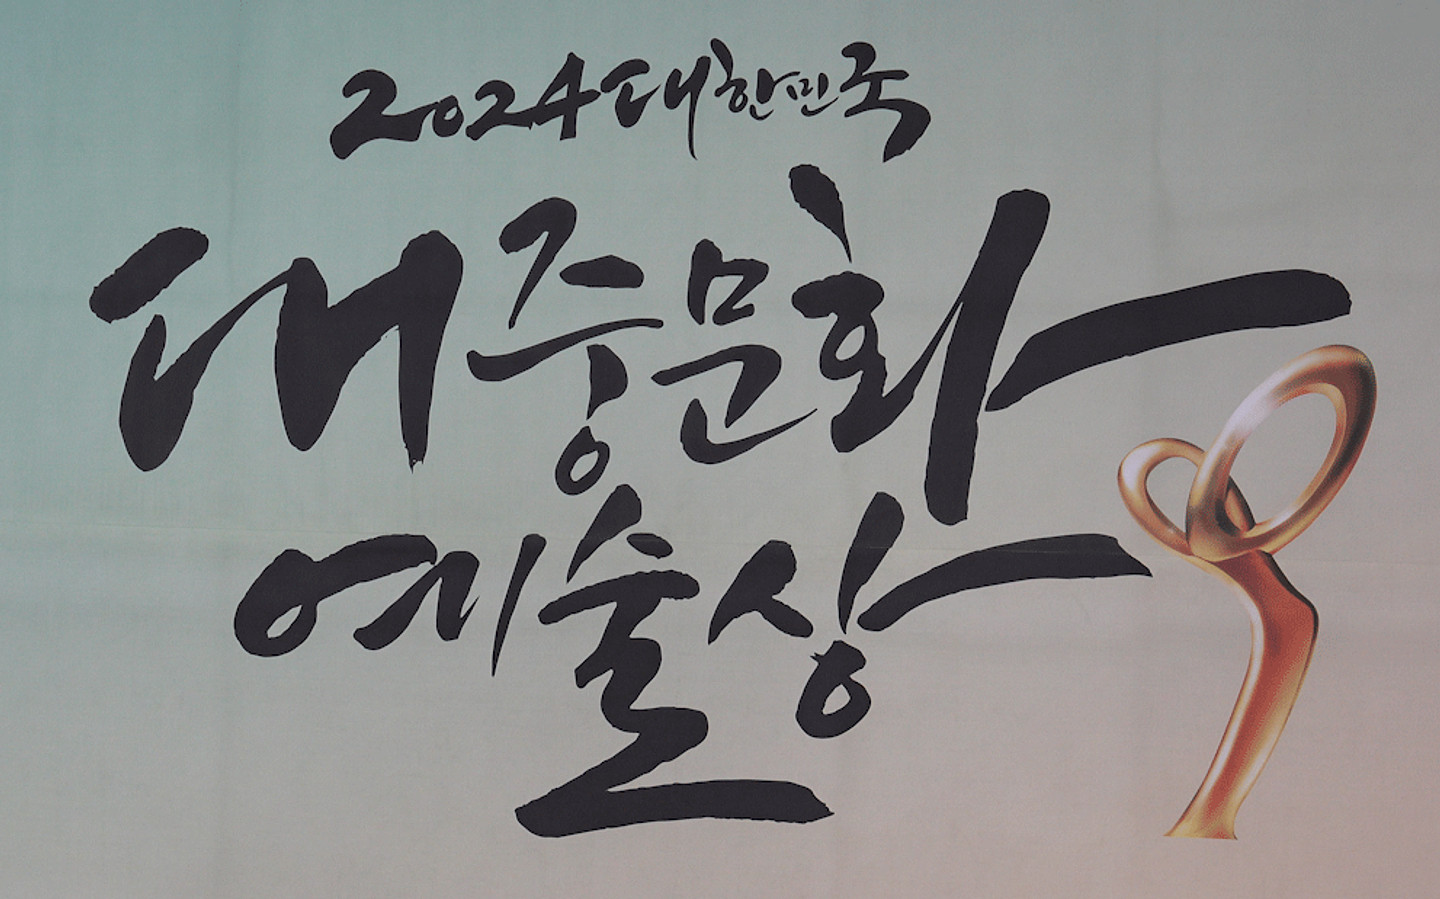 2024 대한민국
대중문화
예술상